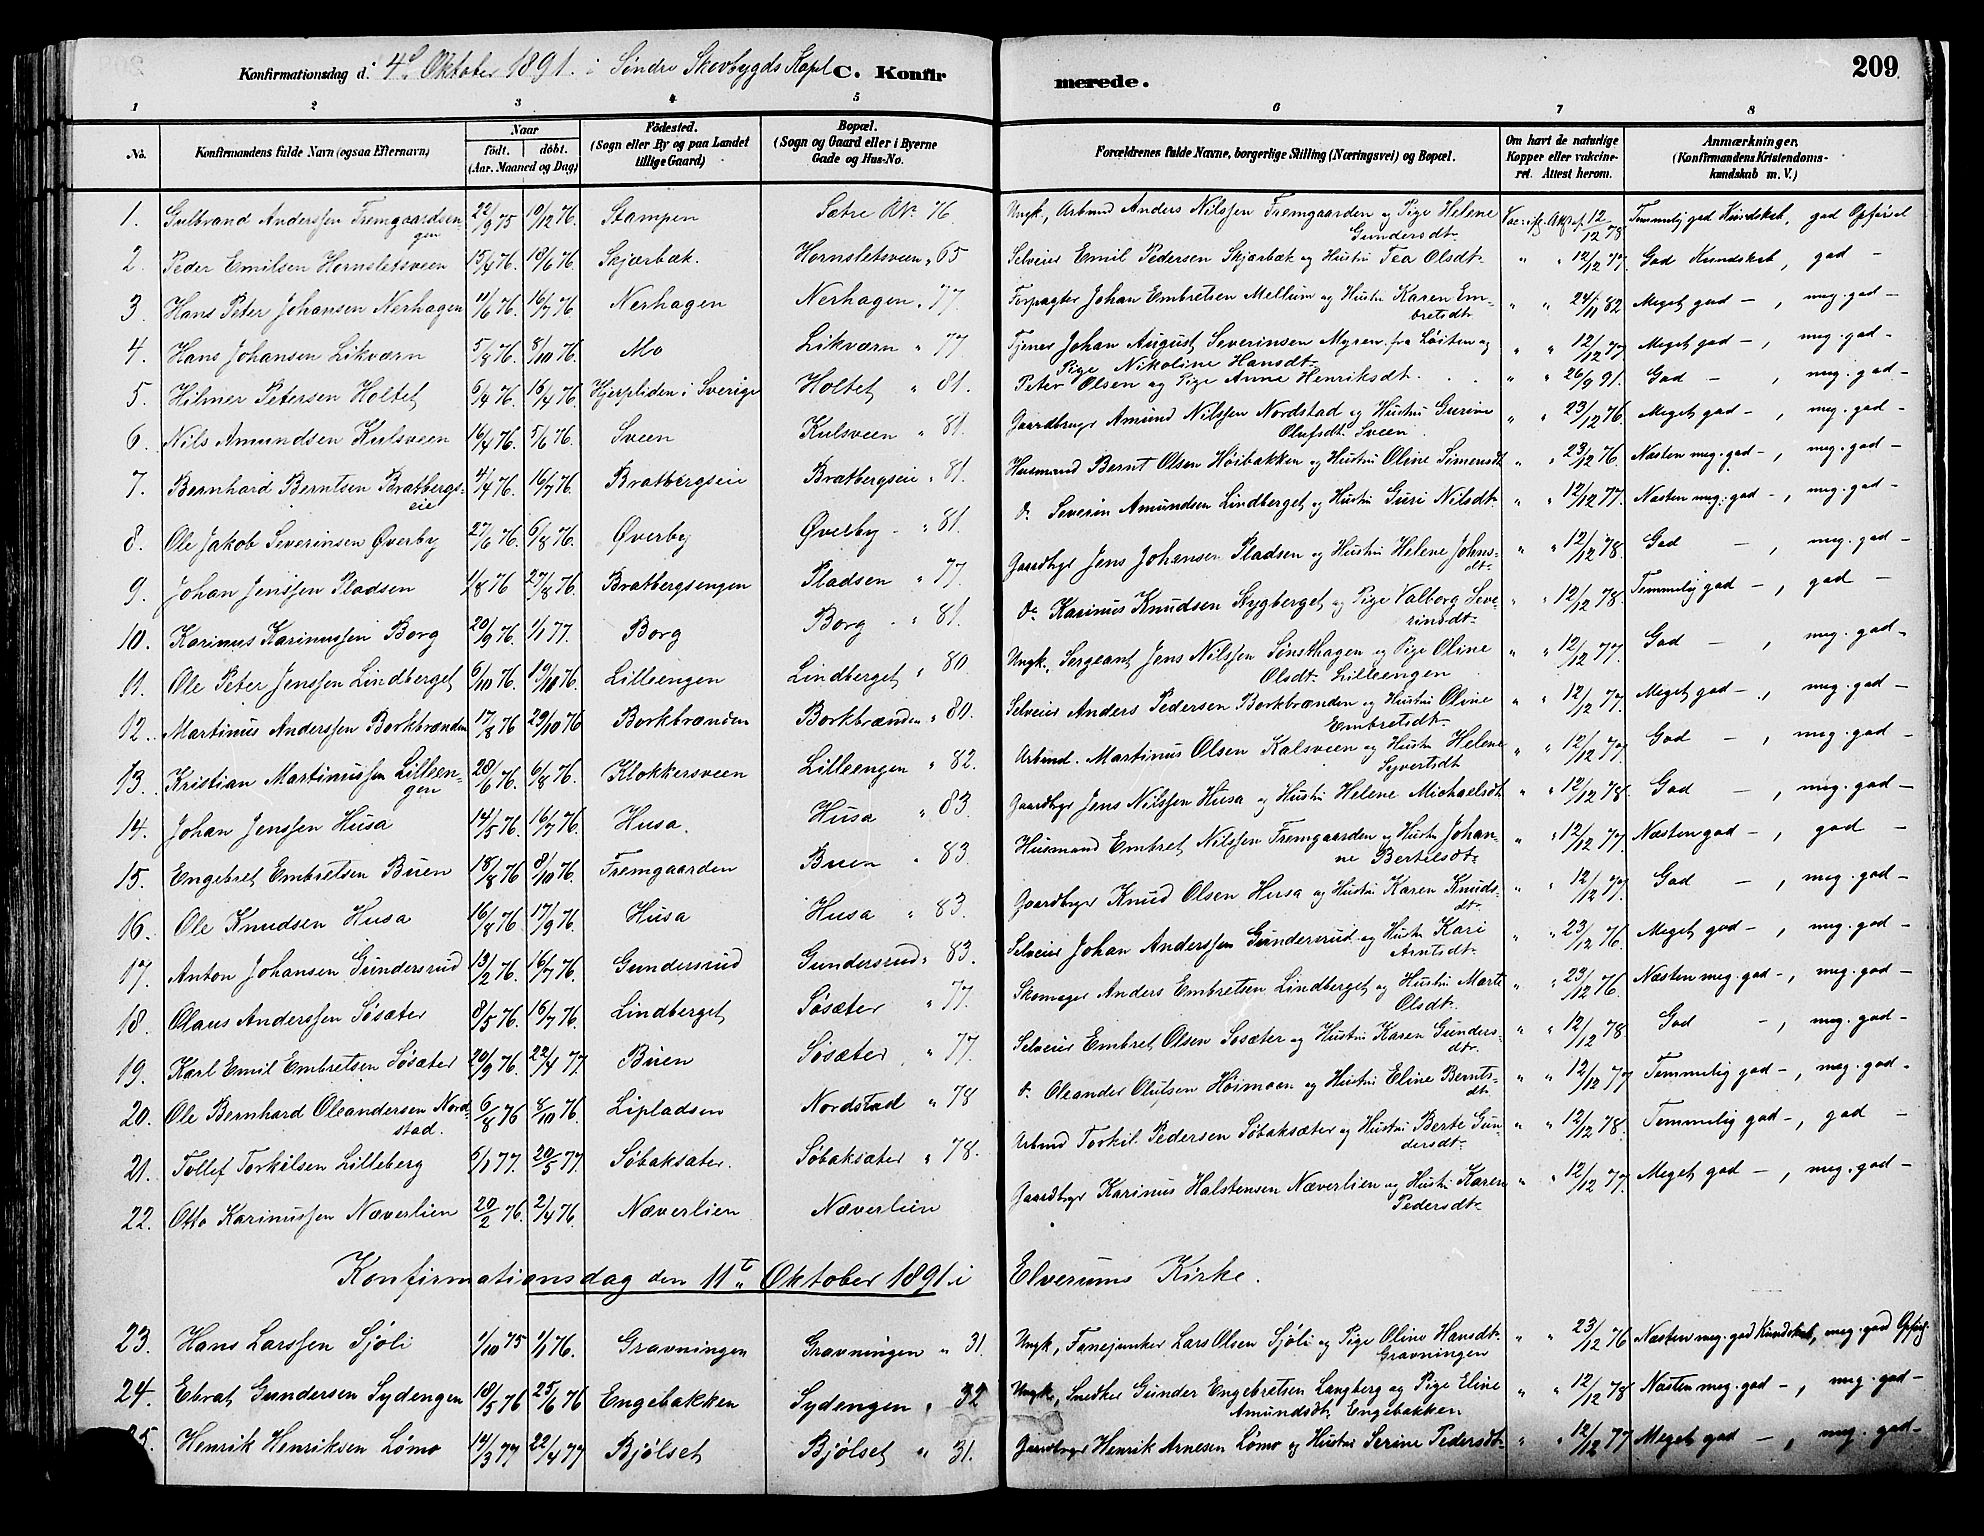 Konfirmationsdag d. 4de Oktober 1891. i Söndre Skovbygds Kapel C. Konfirmerede. 209
1 2 3 4 5 6 7 8
No. Konfirmandens fulde Navn (ogsaa Efternavn) Naar födt. döbt. (Aar. Maaned og Dag) Födested. (Sogn eller By og paa Landet tillige Gaard) Bopæl. (Sogn og Gaard eller i Byerne Gade og Hus-No. Forældrenes fulde Navne, borgerlige Stilling (Næringsvei) og Bopæl. Om havt de naturlige Kopper eller vakcineret. Attest herom. Anmærkninger. (Konfirmandens Kristendomskundskab m. V.)
1. Gulbrand Anderssen Fremgaardsengen 22/9 75 10/12 76. Stampen Sætre 76. Ungk, Arbmd Anders Nilssen Fremgaarden og Pige Helene Gundersdt. 12/12 78 Temmelig god Kundskab, god Opførsel
2. Peder Emilsen Hornsletsveen 15/4 76. 18/6 76. Skjærbæk. Hornsletsveen " 65 Selveier Emil Pedersen Skjærbæk og Hustru Tea Olsdt. " " 12/12 77. God Kundskab, god —
3. Hans Peter Johansen Nerhagen 11/6 76. 16/7 76. Nerhagen Nerhagen " 77. Forpagter Johan Embretsen Mellum og Hustru Karen Embretsdt " " 24/11 82 Meget god —, meg. god —
4. Hans Johansen Likværn 5/8 76. 8/10 76. Mo Likværn " 77 Tjener Johan August Severinsen Myren fra Löiten og Pige Nikoline Hansdt. " " 12/12 77 Meget god —, meg. god —
5. Hilmer Petersen Holtet 6/4 76. 16/4 76. Hjerpliden i Sverige Holtet " 81. Peter Olsen og Pige Anne Henriksdt. " " 26/9 91. God —, meg. god —
6. Nils Amundsen Kulsveen 16/4 76. 5/6 76. Sveen Kulsveen " 81. Gaardbrugr Amund Nilssen Nordstad og Hustru Gurine Olufsdt. Sveen. " " 23/12 76. Meget god —, meg. god —
7. Bernhard Berntsen Bratbergseie 4/4 76. 16/7 76. Bratbergseie Bratbergseie " 81. Husmand Bernt Olsen Höibakken og Hustru Oline Simensdt " " 23/12 76. Næsten meg. god —, meg. god —
8. Ole Jakob Severinsen Øverby 27/6 76. 6/8 76. Øverby Øverby " 81. do Severin Amundsen Lindberget og Hustru Guri Nilsdt. " " 12/12 77. Næsten meg. god —, meg. god —
9. Johan Jenssen Pladsen 1/8 76 27/8 76. Bratbergsengen Pladsen " 77. Gaardbgr Jens Johansen Pladsen og Hustru Helene Johnsdt. " " 12/12 78. God —, meg. god —
10. Karinus Karinussen Borg 20/9 76. 1/1 77. Borg Borg " 81. do Karinus Knudsen Stygberget og Pige Valborg Severinsdt. " " 12/12 78. Temmelig god —, god —
11. Ole Peter Jenssen Lindberget 6/10 76. 19/11 76. Lilleengen Lindberget " 80. Ungk. Sergeant Jens Nilssen Sønsthagen og Pige Oline Olsdt. Lilleengen " " 12/12 77. God —, meg. god —
12. Martinus Anderssen Borkbrænden 17/8 76 29/10 76. Borkbrænden Borkbrænden " 80. Selveier Anders Pedersen Borkbrænden og Hustru Oline Embretsdt. " " 12/12 77. Meget god —, meg. god —
13. Kristian Martinussen Lilleengen 28/6 76. 6/8 76. Klokkersveen Lilleengen " 82. Arbmd. Martinus Olsen Kalsveen og Hustru Helene Syvertsdt " " 12/12 77. God —, meg. god —
14. Johan Jenssen Husa 14/5 76. 16/7 76. Husa. Husa " 83. Gaardbgr Jens Nilssen Husa og Hustru Helene Michaelsdt " " 12/12 78. God —, meg. god —
15. Engebret Embretsen Buen 18/8 76 8/10 76. Fremgaarden Buen " 83. Husmand Embret Nilssen Fremgaarden og Hustru Johanne Bertelsdt. " " 12/12 77. Næsten god —, god —
16. Ole Knudsen Husa 16/8 76. 17/9 76. Husa Husa " 83. Gaardbgr Knud Olsen Husa og Hustru Karen Knudsdt. " " 12/12 77. God —, meg. god —
17. Anton Johansen Gundersrud 13/2 76. 16/7 76. Gundersrud Gundersrud " 83. Selveier Johan Anderssen Gundersrud og Hustru Kari Arntsdt. " " 23/12 76. Meget god —, meg. god —
18. Olaus Anderssen Søsæter 8/5 76. 16/7 76. Lindberget Søsæter " 77. Skomager Anders Embretsen Lindberget og Hustru Marte Olsdt. " " 23/12 76. Næsten meg. god —, meg. god —
19. Karl Emil Embretsen Søsæter 20/9 76. 22/4 77. Buen Søsæter " 77. Selveier Embret Olsen Søsæter og Hustru Karen Gundersdt. " " 12/12 78. God —, meg. god —
20. Ole Bernhard Oleandersen Nordstad. 6/8 76 8/10 76. Lipladsen Nordstad " 78 do Oleander Olufsen Höimoen og Hustru Eline Berntsdt. " " 12/12 77 Temmelig god —, meg. god —
21. Tollef Torkilsen Lilleberg 6/1 77. 20/5 77. Søbaksæter. Søbaksæter " 78. Arbmd Torkil Pedersen Søbaksæter og Hustru Berte Gundersdt. " " 12/12 78. Temmelig god —, god —
22. Otto Karinussen Næverlien 20/2 76. 2/4 76. Næverlien Næverlien Gaardbgr Karinus Halstensen Næverlien og Hustru Karen Pedersdt. " " 12/12 77. Meget god —, meg. god —
Konfirmationsdag den 11te Oktober 1891 i Elverums Kirke.
23. Hans Larssen Sjöli 1/10 75 1/1 76. Gravningen Gravningen " 31. Ungk, Fanejunker Lars Olsen Sjöli og Pige Oline Hansdt. Gravningen " " 23/12 76 Næsten meg. god Kundskab, meg. god Opførs.
24. Ebrat Gundersen Sydengen 18/5 76 25/6 76 Engebakken Sydengen " 32 Ungk, Snedker Gunder Engebretsen Langberg og Pige Eline Amundsdt. Engebakken " " 12/12 78 Næsten meg. god —, meg. god —
25. Henrik Henriksen Lømo 14/3 77 22/4 77 Bjölset Bjölset " 31. Gaardbrgr Henrik Arnesen Lømo og Hustru Serine Pedersdt. " " 12/12 77 Meget god —, meg. god —